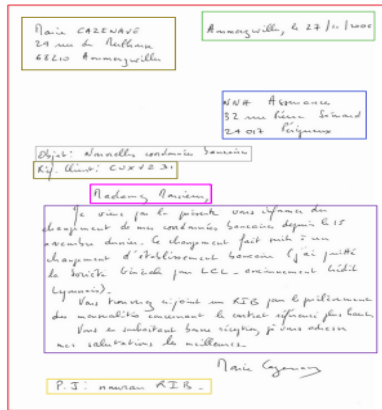 Marie CAZENAVE
24 rue de Mulhouse
68210 Ammerzwiller
Ammerzwiller, le 27/11/2006
NNA Assurance
32 rue Pierre Sémard
24017 Périgueux
Objet: Nouvelles coordonnées bancaires
Réf. Client: CUXVZ31
Madame, Monsieur,
Je viens par la présente vous informer du
changement de mes coordonnées bancaires depuis le 15
novembre dernier. Ce changement fait suite à un
changement d'établissement bancaire (j'ai quitté
la Société Générale pour LCL - anciennement Crédit
Lyonnais).
Vous trouverez ci-joint un RIB pour le prélèvement
des mensualités concernant le contrat référencé plus haut.
Vous en souhaitant bonne réception, je vous adresse
mes salutations les meilleures.
Marie Cazenave
P.J: nouveau RIB.